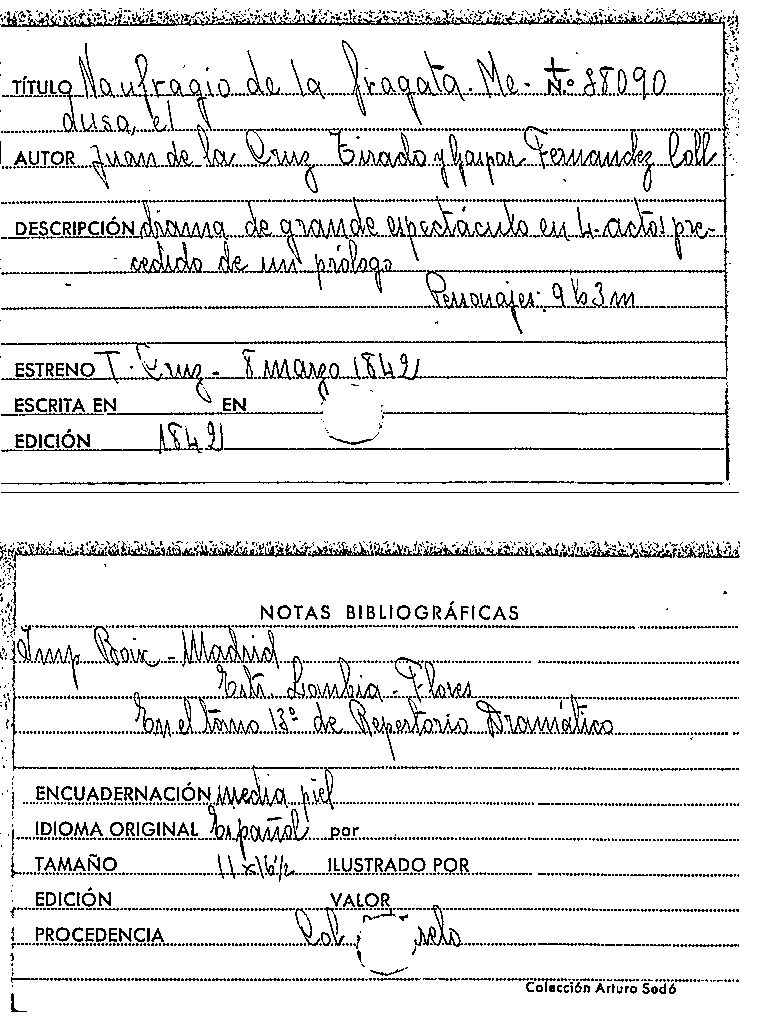 TÍTULO Naufragio de la fragata Me- N.º 38090
dusa, el
AUTOR Juan de la Cruz Tirado y Gaspar Fernandez Coll
DESCRIPCIÓN drama de grande espectáculo en 4 actos pre-
cedido de un prólogo
Personajes: 9 h 3 m
ESTRENO T. Cruz - 8 marzo 1842
ESCRITA EN EN
EDICIÓN 1842
NOTAS BIBLIOGRÁFICAS
Imp Boix - Madrid
Estr. Lombia - Flores
En el tomo 13º de Repertorio Dramático
ENCUADERNACIÓN media piel
IDIOMA ORIGINAL Español por
TAMAÑO 11 x 16 1/2 ILUSTRADO POR
EDICIÓN VALOR
PROCEDENCIA
Colección Arturo Sedó